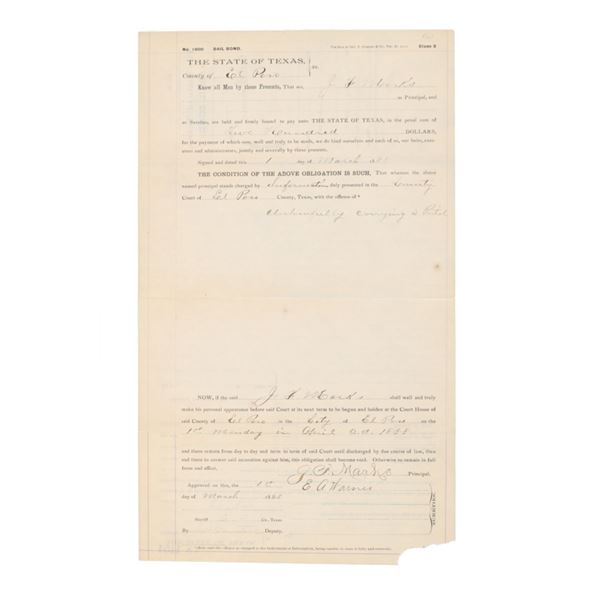 No. 1000 BAIL BOND. Class 2
THE STATE OF TEXAS, ss.
County of El Paso
Know all Men by these Presents, That we, J F Marks
as Principal, and
as Sureties, are held and firmly bound to pay unto THE STATE OF TEXAS, in the penal sum of
Two Hundred DOLLARS,
for the payment of which sum, well and truly to be made, we do bind ourselves and each of us, our heirs, execu-
tors and administrators, jointly and severally by these presents.
Signed and dated this 1 day of March 188
THE CONDITION OF THE ABOVE OBLIGATION IS SUCH, That whereas the above
named principal stands charged by Information, duly presented in the County
Court of El Paso County, Texas, with the offense of*
Unlawfully carrying a Pistol
NOW, if the said J F Marks shall well and truly
make his personal appearance before said Court at its next term to be begun and holden at the Court House of
said County of El Paso in the City of El Paso on the
1st Monday in April A.D. 1888
and there remain from day to day and term to term of said Court until discharged by due course of law, then
and there to answer said accusation against him, this obligation shall become void. Otherwise to remain in full
force and effect. J. F. Marks Principal.
Approved on this, the 1st E A Harris
day of March 188
SURETIES.
Sheriff Co. Texas
By Deputy.